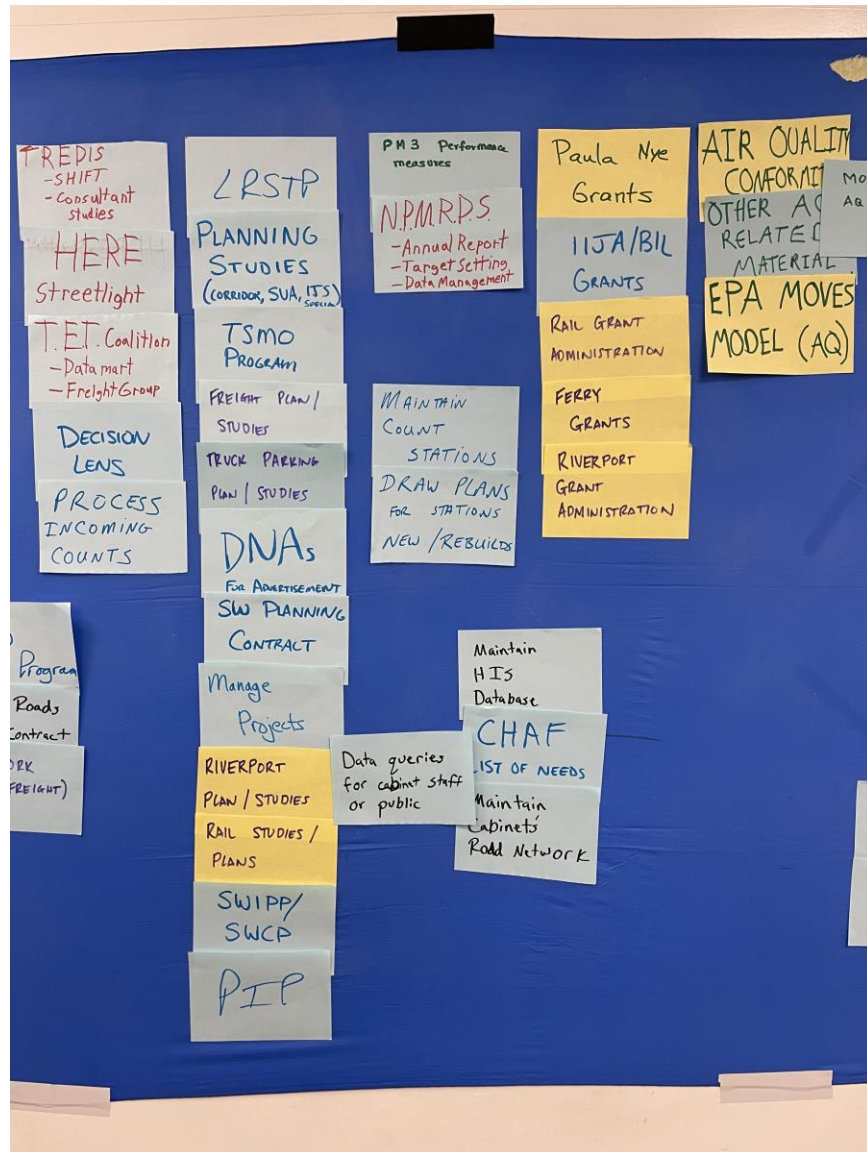 TREDIS
-SHIFT
-Consultant
studies
HERE
Streetlight
T.E.T. Coalition
-Datamart
-Freight Group
DECISION
LENS
PROCESS
INCOMING
COUNTS
Program
Roads
Contract
FREIGHT)
LRSTP
PLANNING
STUDIES
(CORRIDOR, SUA, ITS)
SPECIAL
TSMO
PROGRAM
FREIGHT PLAN/
STUDIES
TRUCK PARKING
PLAN/STUDIES
DNAs
FOR ADVERTISEMENT
SW PLANNING
CONTRACT
Manage
Projects
RIVERPORT
PLAN/STUDIES
RAIL STUDIES/
PLANS
SWIPP/
SWCP
PIP
PM3 Performance
measures
N.P.M.R.D.S.
-Annual Report
-Target Setting
-Data Management
MAINTAIN
COUNT
STATIONS
DRAW PLANS
FOR STATIONS
NEW/REBUILDS
Data queries
for cabinet staff
or public
Maintain
HIS
Database
CHAF
LIST OF NEEDS
Maintain
Cabinets'
Road Network
Paula Nye
Grants
IIJA/BIL
GRANTS
RAIL GRANT
ADMINISTRATION
FERRY
GRANTS
RIVERPORT
GRANT
ADMINISTRATION
AIR QUALITY
CONFORMI
OTHER AQ
RELATED
MATERIAL
EPA MOVES
MODEL (AQ)
MO
AQ